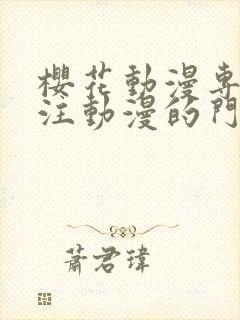 櫻花動漫專
注動漫的門
蕭君瑋